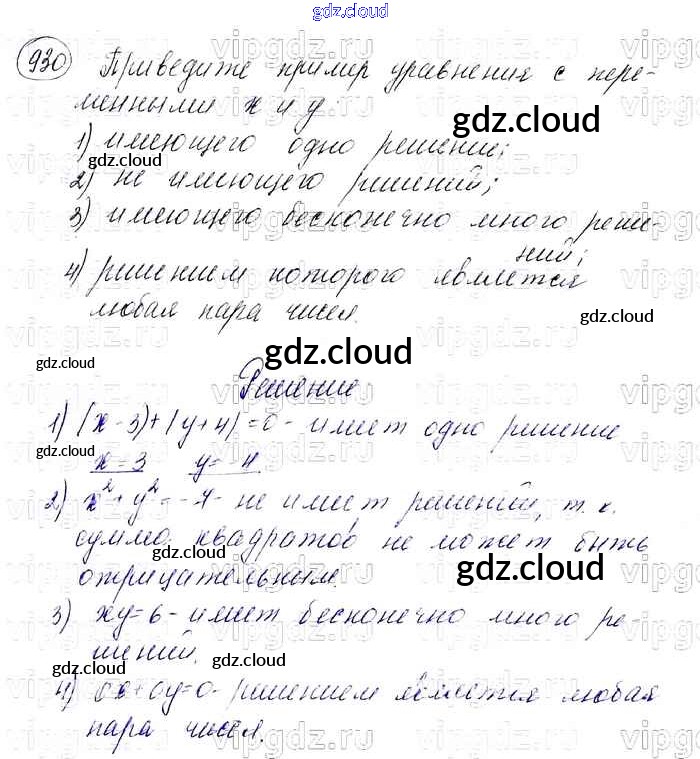 gdz.cloud
930 Приведите пример уравнения с пере-
менными x и y:
gdz.cloud
1) имеющего одно решение;
gdz.cloud
2) не имеющего решений;
3) имеющего бесконечно много реше-
ний;
4) решением которого является
любая пара чисел.
gdz.cloud
gdz.cloud
gdz.cloud
Решение
1) |x-3|+|y+4|=0- имеет одно решение
x=3 y=-4
2) x²+y²=-7- не имеет решений, т. к.
сумма квадратов не может быть
gdz.cloud
отрицательным.
gdz.cloud
3) xy=6- имеет бесконечно много ре-
шений.
gdz.cloud
gdz.cloud
4) 0x+0y=0- решением является любая
пара чисел.
gdz.cloud